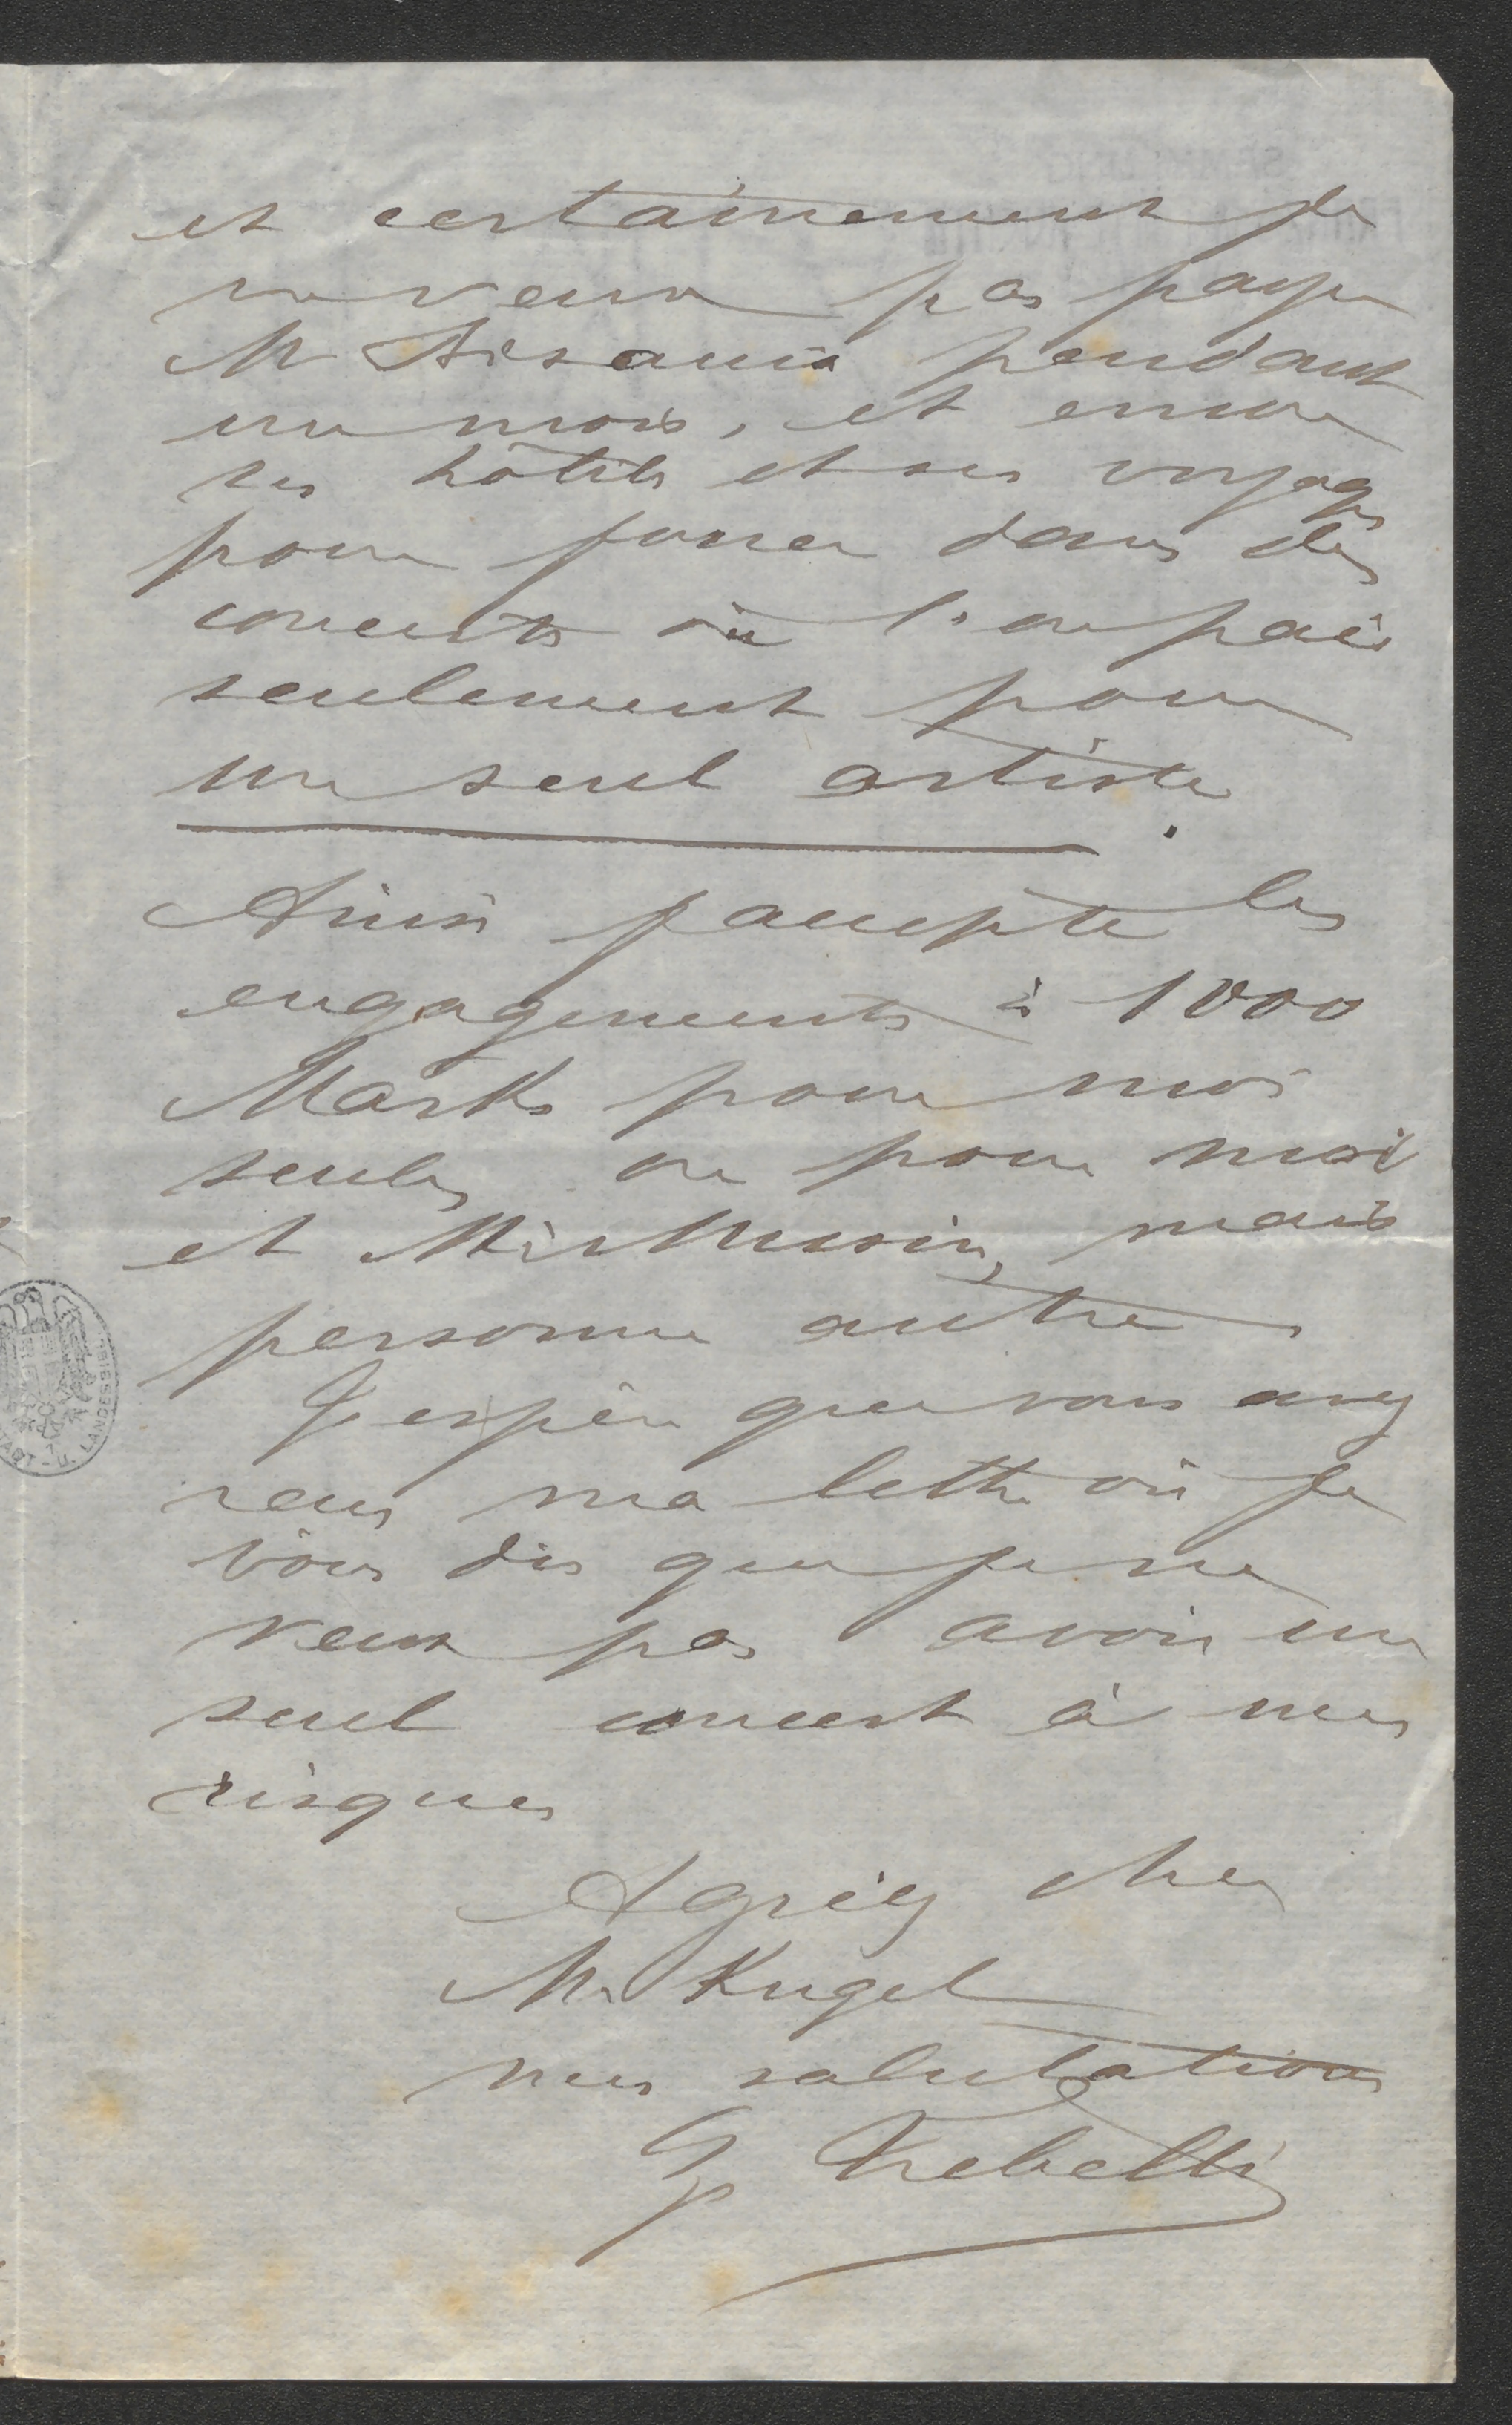 et certainement je
ne veux pas payer
M Bisaccia pendant
un mois, et encore
ses hôtels et ses voyages
pour jouer dans des
concerts où l'on paie
seulement pour
un seul artiste.
Ainsi j'accepte les
engagements à 1000
Marks pour moi
seule, ou pour moi
et Mr Musin, mais
personne autre
J'espère que vous avez
reçus ma lettre où je
vous dis que je ne
veux pas avoir un
seul concert à mes
risques
Agréez cher
M. Kugel
mes salutations
Z Trebelli